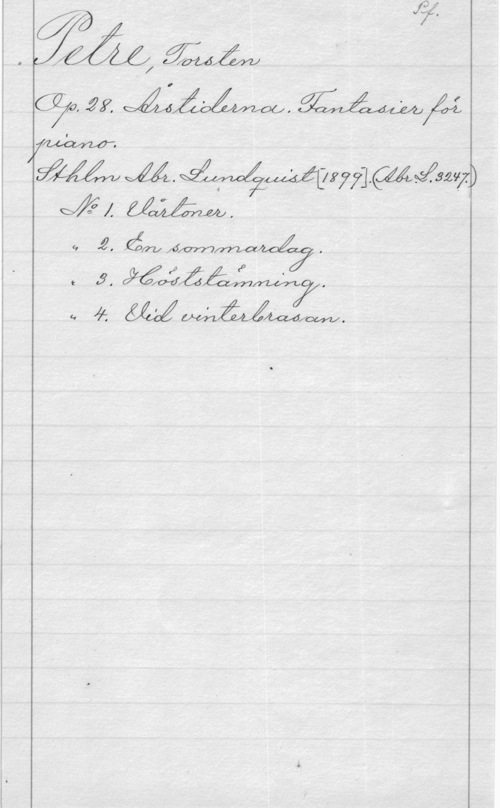 Pf.
Petre, Torsten
Op. 28. Årstiderna. Fantasier för
piano.
Sthlm Abr. Lundquist [1899]. (Abr. L. 3247.)
No 1. Vårtoner.
" 2. En sommardag.
" 3. Höststämning.
" 4. Vid vinterbrasan.